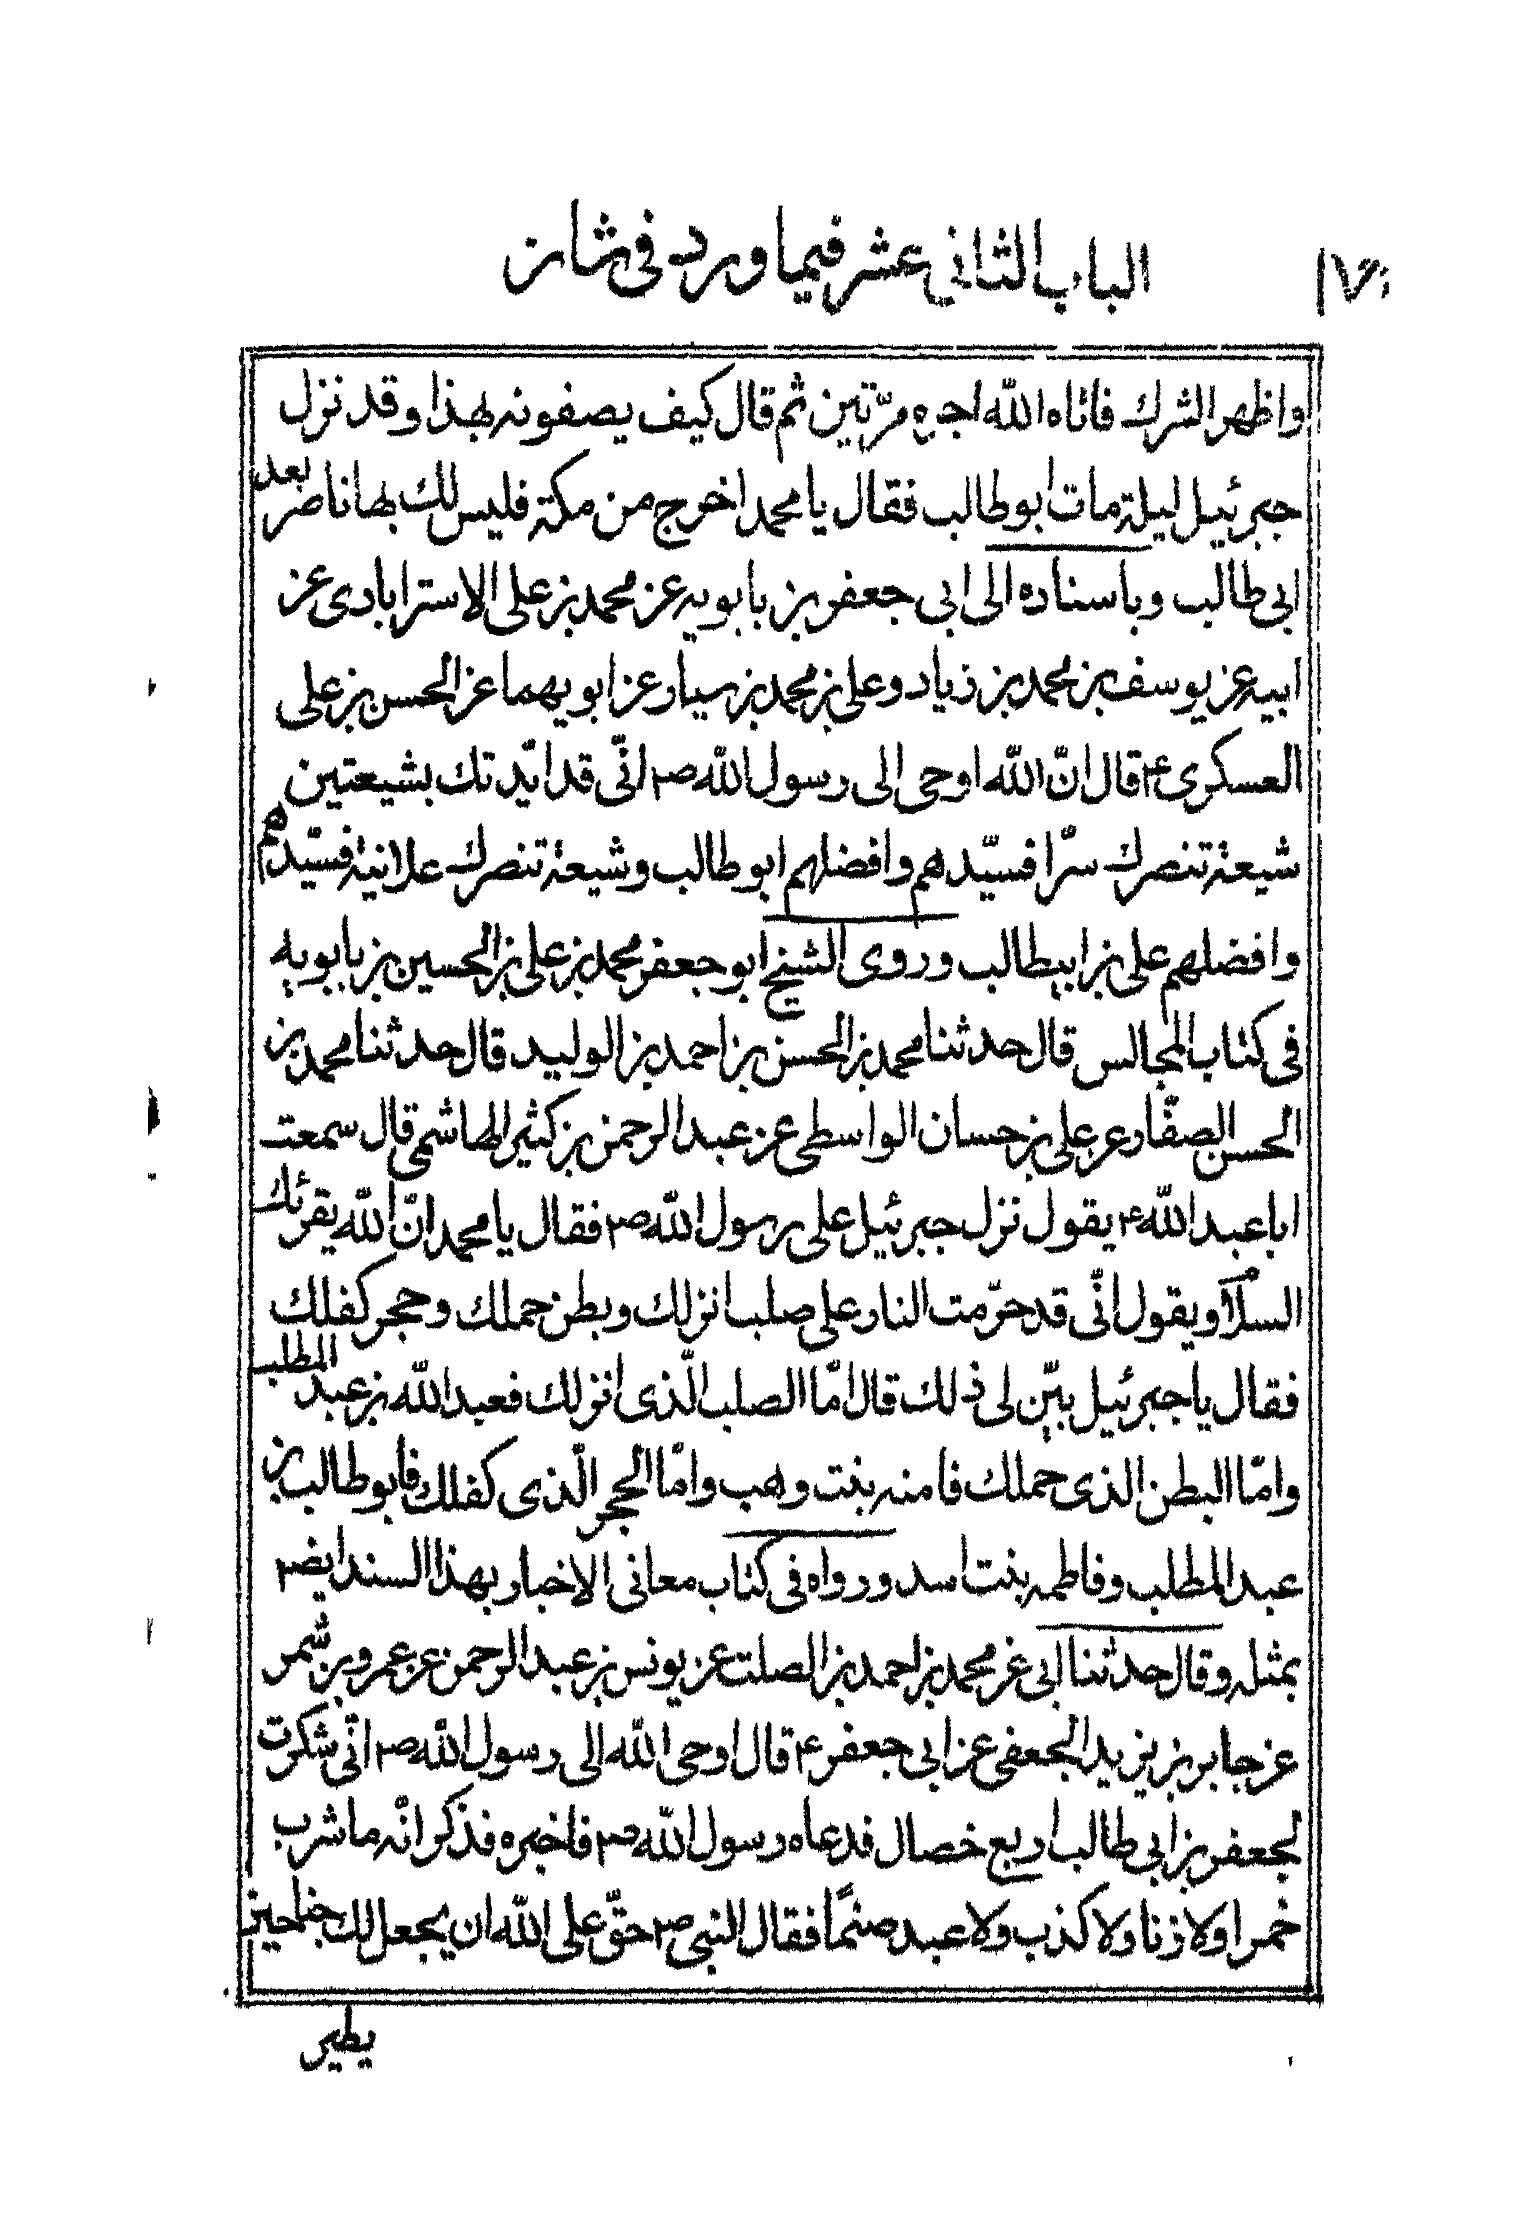 الباب الثانى عشر فيما ورد فى شان
واظهر الشرك فاتاه الله اجره مرّتين ثم قال كيف يصفونه بهذا وقد نزل
جبرئيل ليلة مات ابو طالب فقال يا محمد اخرج من مكة فليس لك بها ناصر بعد
ابى طالب وباسناده الى ابى جعفر بن بابويه عن محمد بن على الاسترابادى عن
ابيه عن يوسف بن محمد بن زياد وعلى بن محمد بن سيار عن ابويهما عن الحسن بن على
العسكرى ع قال انّ الله اوحى الى رسول الله ص انّى قد ايّدتك بشيعتين
شيعة تنصرك سرّا فسيّدهم وافضلهم ابو طالب وشيعة تنصرك علانية فسيّدهم
وافضلهم على بن ابيطالب وروى الشيخ ابو جعفر محمد بن على بن الحسين بن بابويه
فى كتاب المجالس قال حدثنا محمد بن الحسن بن احمد بن الوليد قال حدثنا محمد بن
الحسن الصفّار عن على بن حسان الواسطى عن عبد الرحمن بن كثير الهاشمى قال سمعت
ابا عبد الله ع يقول نزل جبرئيل على رسول الله ص فقال يا محمد انّ الله يقرئك
السلام ويقول انّى قد حرّمت النار على صلب انزلك وبطن حملك وحجر كفلك
فقال يا جبرئيل بيّن لى ذلك قال امّا الصلب الّذى انزلك فعبد الله بن عبد المطلب
وامّا البطن الذى حملك فامنه بنت وهب وامّا الحجر الّذى كفلك فابو طالب بن
عبد المطلب وفاطمه بنت اسد ورواه فى كتاب معانى الاخبار بهذا السند ايضا
بمثله وقال حدثنا ابى عن محمد بن احمد بن الصلت عن يونس بن عبد الرحمن عن عمرو بن شمر
عن جابر بن يزيد الجعفى عن ابى جعفر ع قال اوحى الله الى رسول الله ص انّى شكرت
لجعفر بن ابى طالب اربع خصال فدعاه رسول الله ص فاخبره فذكر انّه ما شرب
خمرا ولا زنا ولا كذب ولا عبد صنمًا فقال النبى ص حقّ على الله ان يجعل لك جناحين
يطير